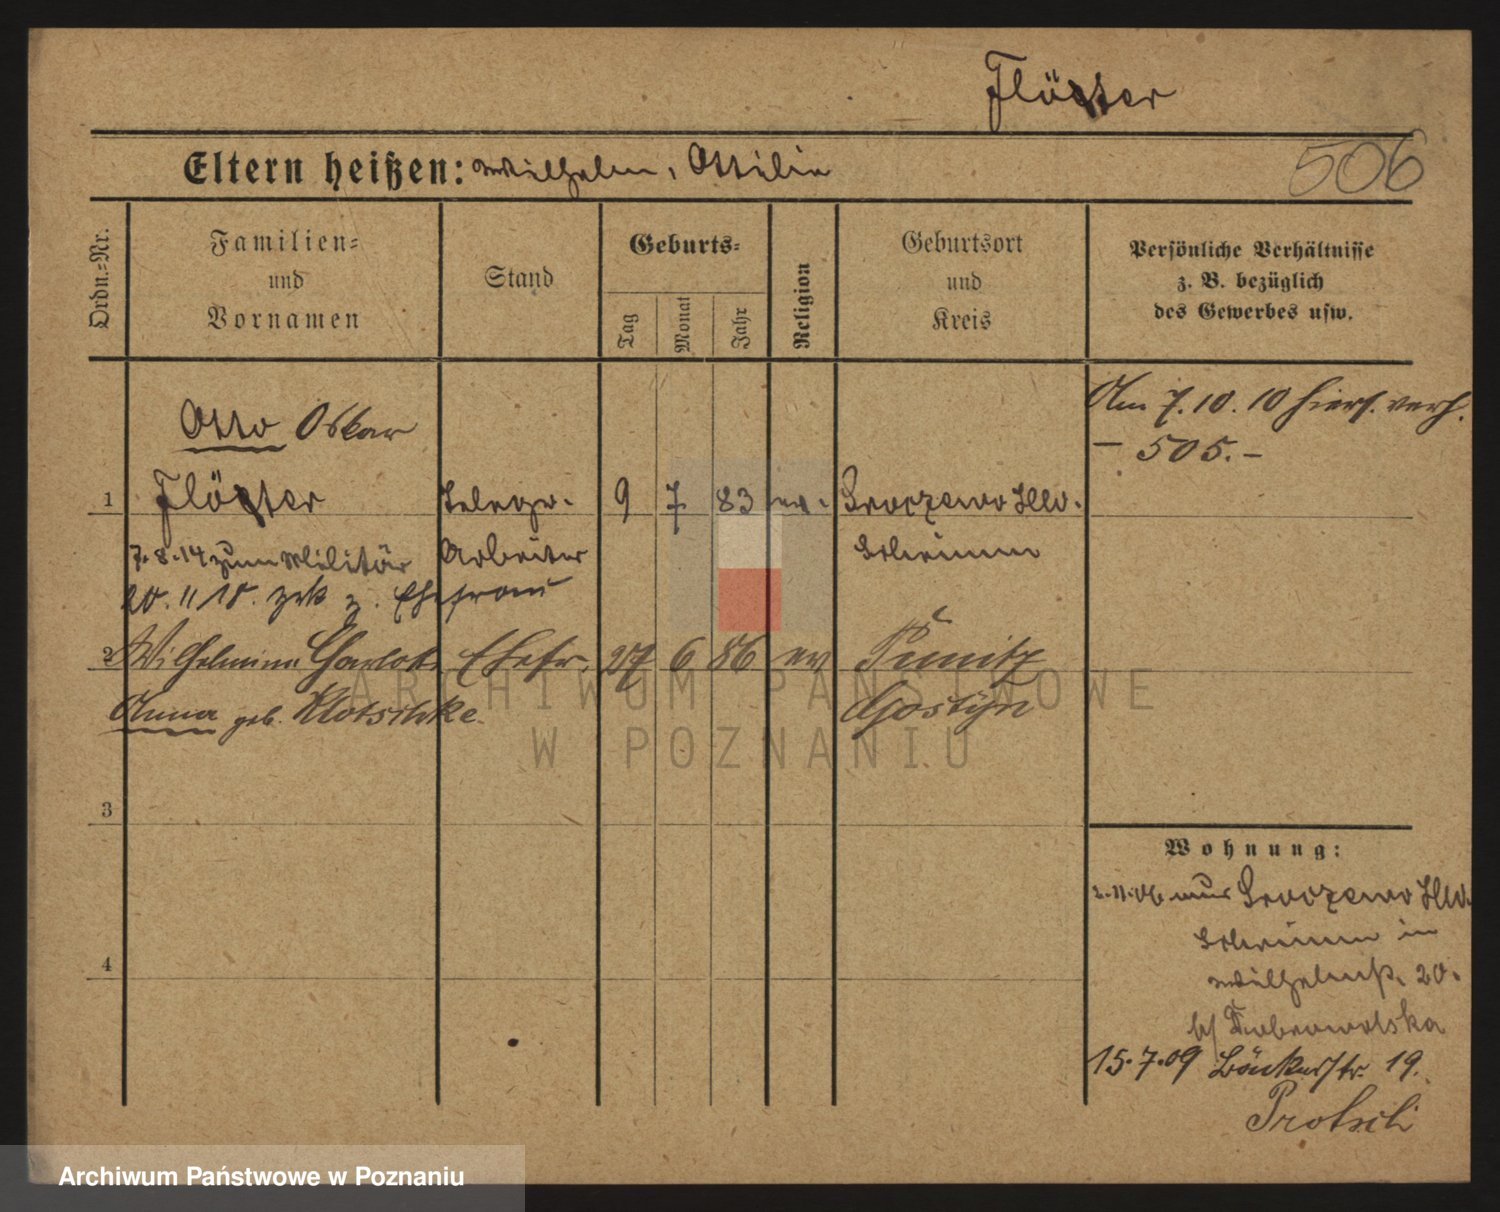 Flöter
Eltern heißen: Wilhelm, Ottilie
506
Ordn.=Nr.
Familien=
und
Vornamen
Stand
Geburts=
Tag
Monat
Jahr
Religion
Geburtsort
und
Kreis
Persönliche Verhältnisse
z. B. bezüglich
des Gewerbes usw.
Am 7.10.10 hiers. verh.
– 505. –
Otto Oskar
1 Flöter Telegr. 9 7 83 ev. Sroczewo
7.8.14 zum Militär Arbeiter Schrimm
20.11.18. zrk z. Ehefrau
2 Wilhelmine Charlotte Ehefr. 27 6 86 ev Punitz
Anna geb. Klotschke Gostyn
3
4
Wohnung:
2.11.06 aus Sroczewo
Schrimm in
Wilhelmstr. 20.
b/ Dobrowolska
15.7.09 Bäckerstr. 19.
ARCHIWUM PAŃSTWOWE
W POZNANIU
Archiwum Państwowe w Poznaniu